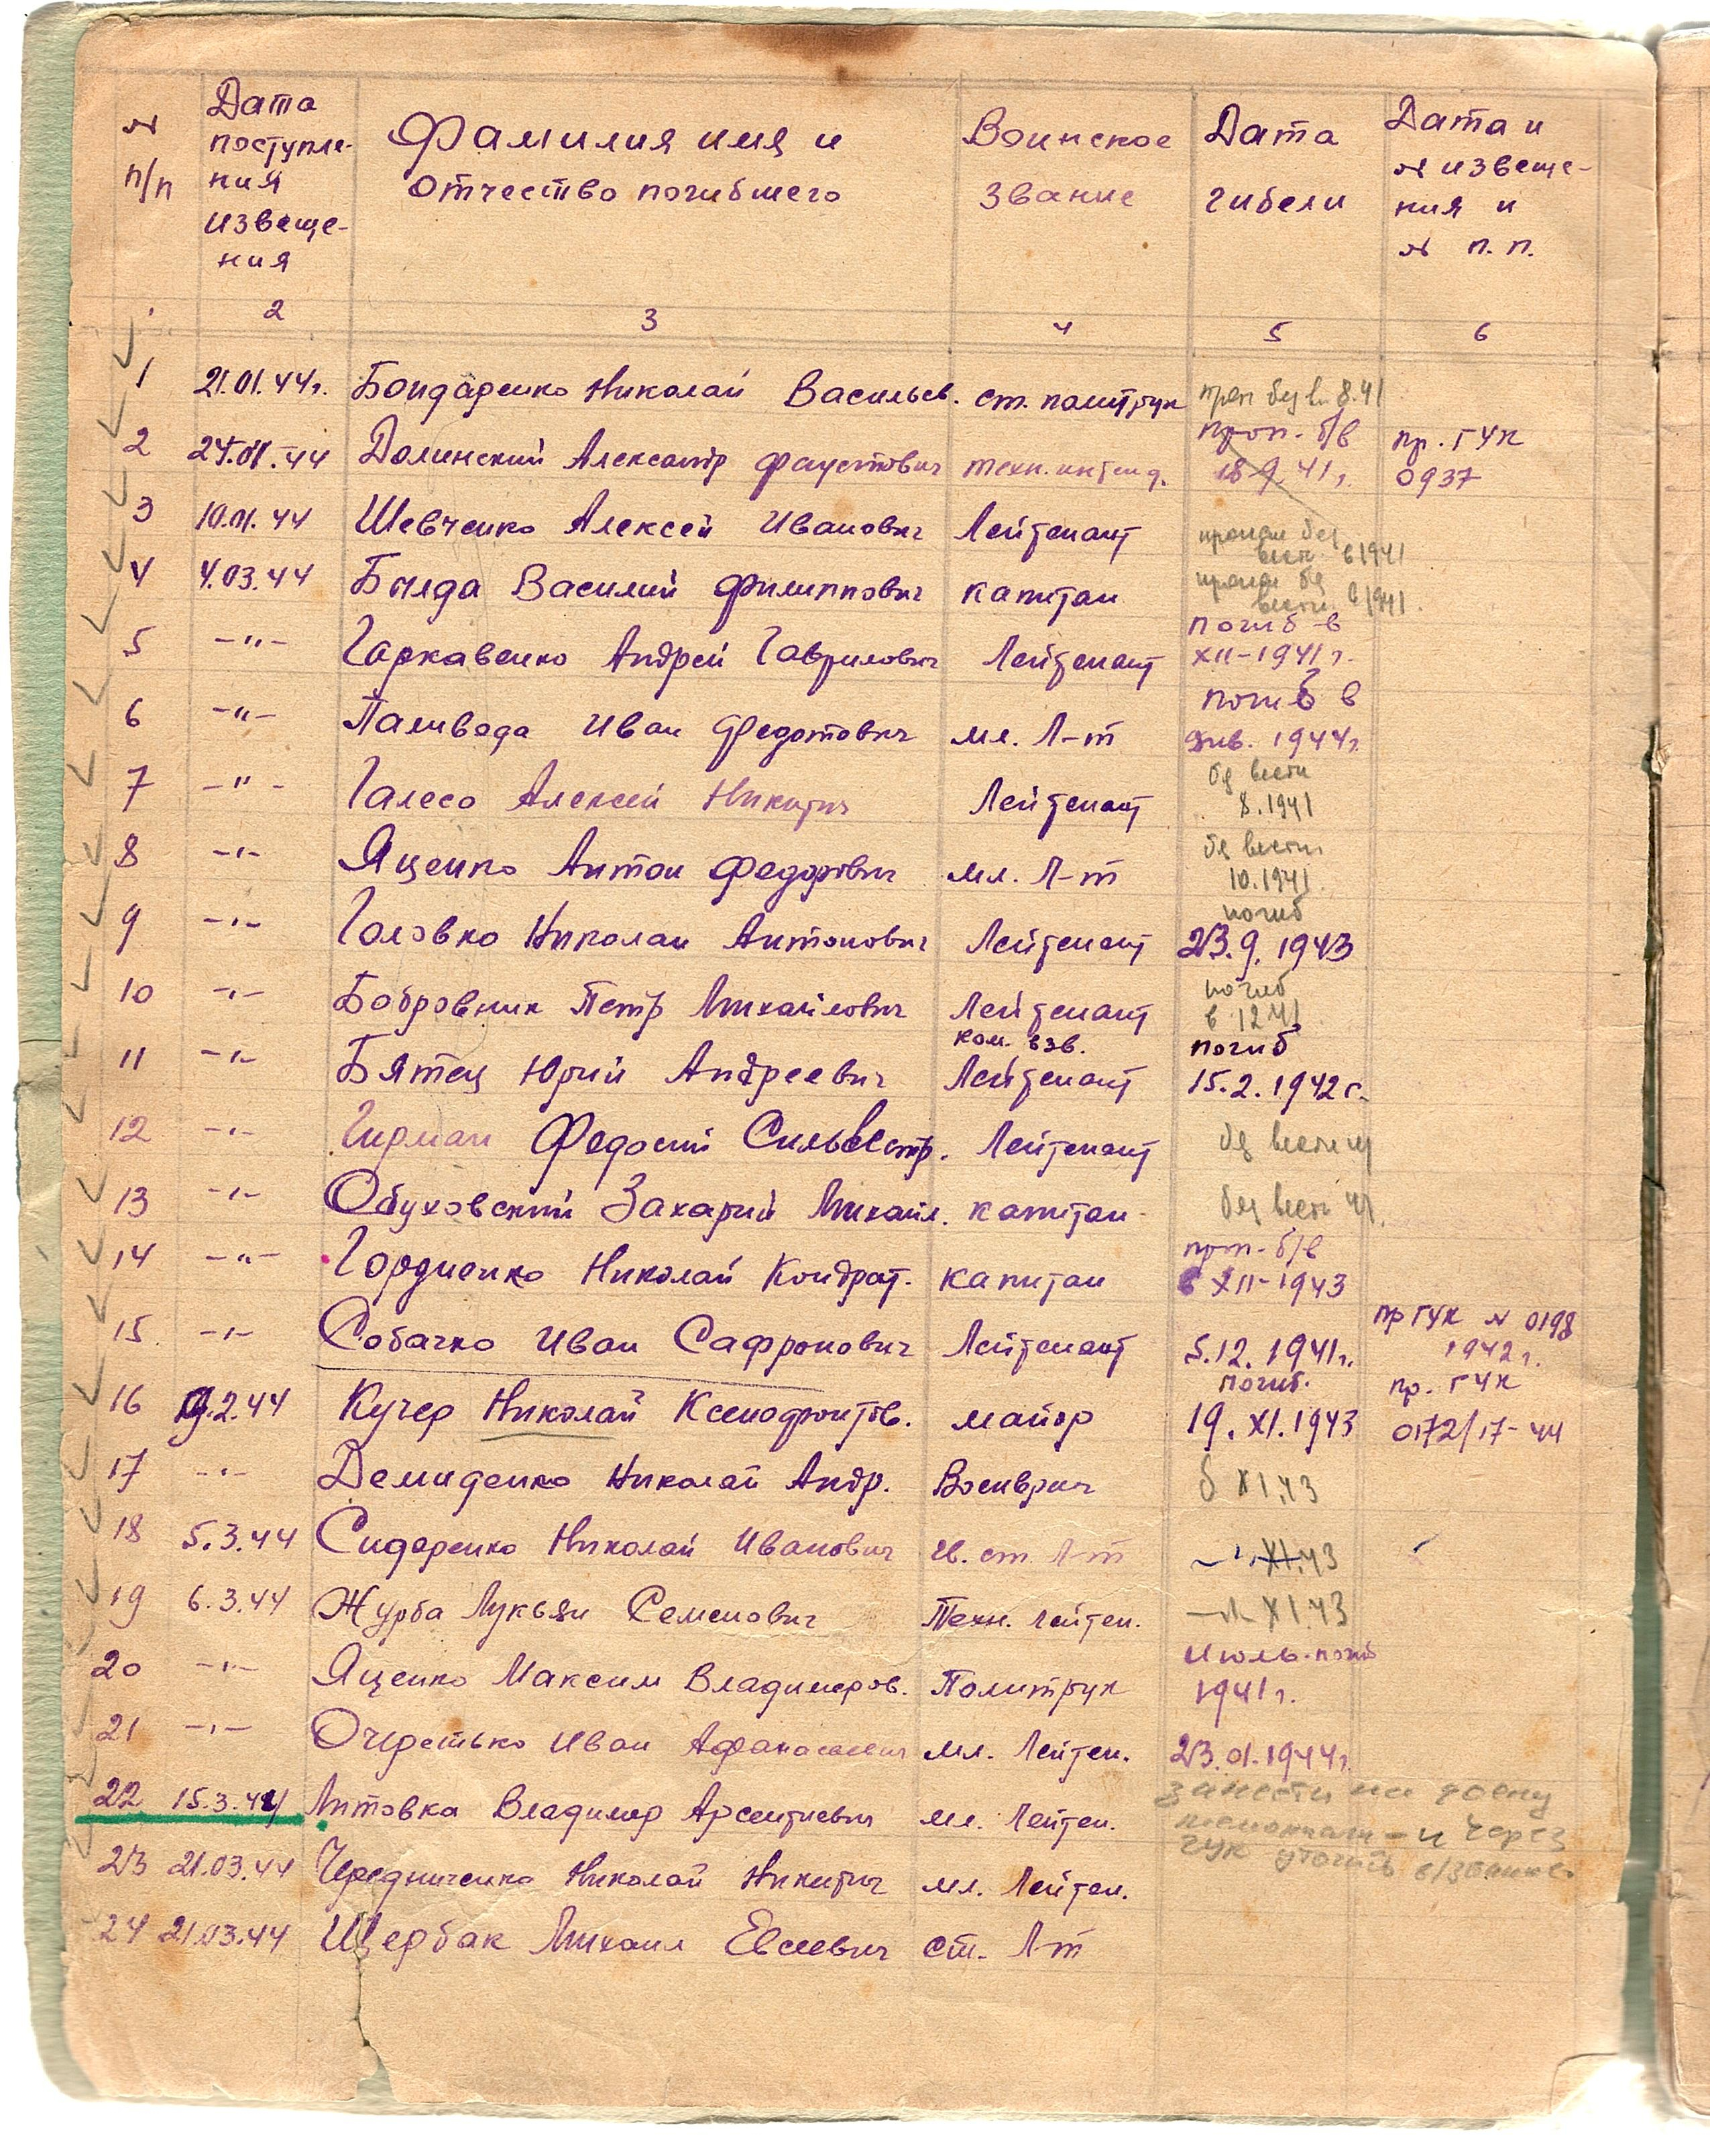 № п/п
Дата поступле-ния извеще-ния
Фамилия имя и отчество погибшего
Воинское звание
Дата гибели
Дата и № извеще-ния и № п.п.
2 3 4 5 6
1 21.01.44г. Бондаренко Николай Васильев. ст. политрук проп без в. 8.41
2 24.01.44 Долинский Александр Фаустович техн. интенд. проп. б/в 18 9 41г. пр. ГУК 0937
3 10.01.44 Шевченко Алексей Иванович Лейтенант пропал без вест. в 1941
4 4.03.44 Василий Филиппович капитан пропал без вести в 1941.
5 -"- Гаркавенко Андрей Гаврилович Лейтенант погиб в XII-1941г.
6 -"- Паливода Иван Федотович мл. Л-т погиб в янв. 1944г.
7 -"- Галесо Алексей Никитич Лейтенант без вести 8.1941
8 -"- Яценко Антон Федорович мл. Л-т без вести 10.1941
9 -"- Головко Николай Антонович Лейтенант погиб 23.9.1943
10 -"- Бобровник Петр Михайлович Лейтенант погиб в 12 41
11 -"- Бятец Юрий Андреевич ком. взв. Лейтенант погиб 15.2.1942г.
12 -"- Гирман Федосий Сильвестр. Лейтенант без вести 41
13 -"- Обуховский Захарий Михайл. капитан без вести 41.
14 -"- Гордиенко Николай Кондрат. капитан проп. б/в в XII-1943
15 -"- Собачко Иван Сафронович Лейтенант 5.12.1941г. пр ГУК № 0198 1942г.
16 19.2.44 Кучер Николай Ксенофонтов. майор погиб. 19.XI.1943 пр. ГУК 0172/17-44
17 -"- Демиденко Николай Андр. Военврач б XI.43
18 5.3.44 Сидоренко Николай Иванович гв. ст. Л-т -"- XI.43
19 6.3.44 Журба Лукьян Семенович Техн. лейтен. -"- XI.43
20 -"- Яценко Максим Владимиров. Политрук Июль-погиб 1941г.
21 -"- Очеретько Иван Афанасьевич мл. Лейтен. 23.01.1944г.
22 15.3.44 Литовка Владимир Арсентиевич мл. Лейтен. занести на доску и через ГУК уточнить в/звание
23 21.03.44 Чередниченко Николай Никитич мл. Лейтен.
24 21.03.44 Щербак Михаил Евсеевич ст. Л-т